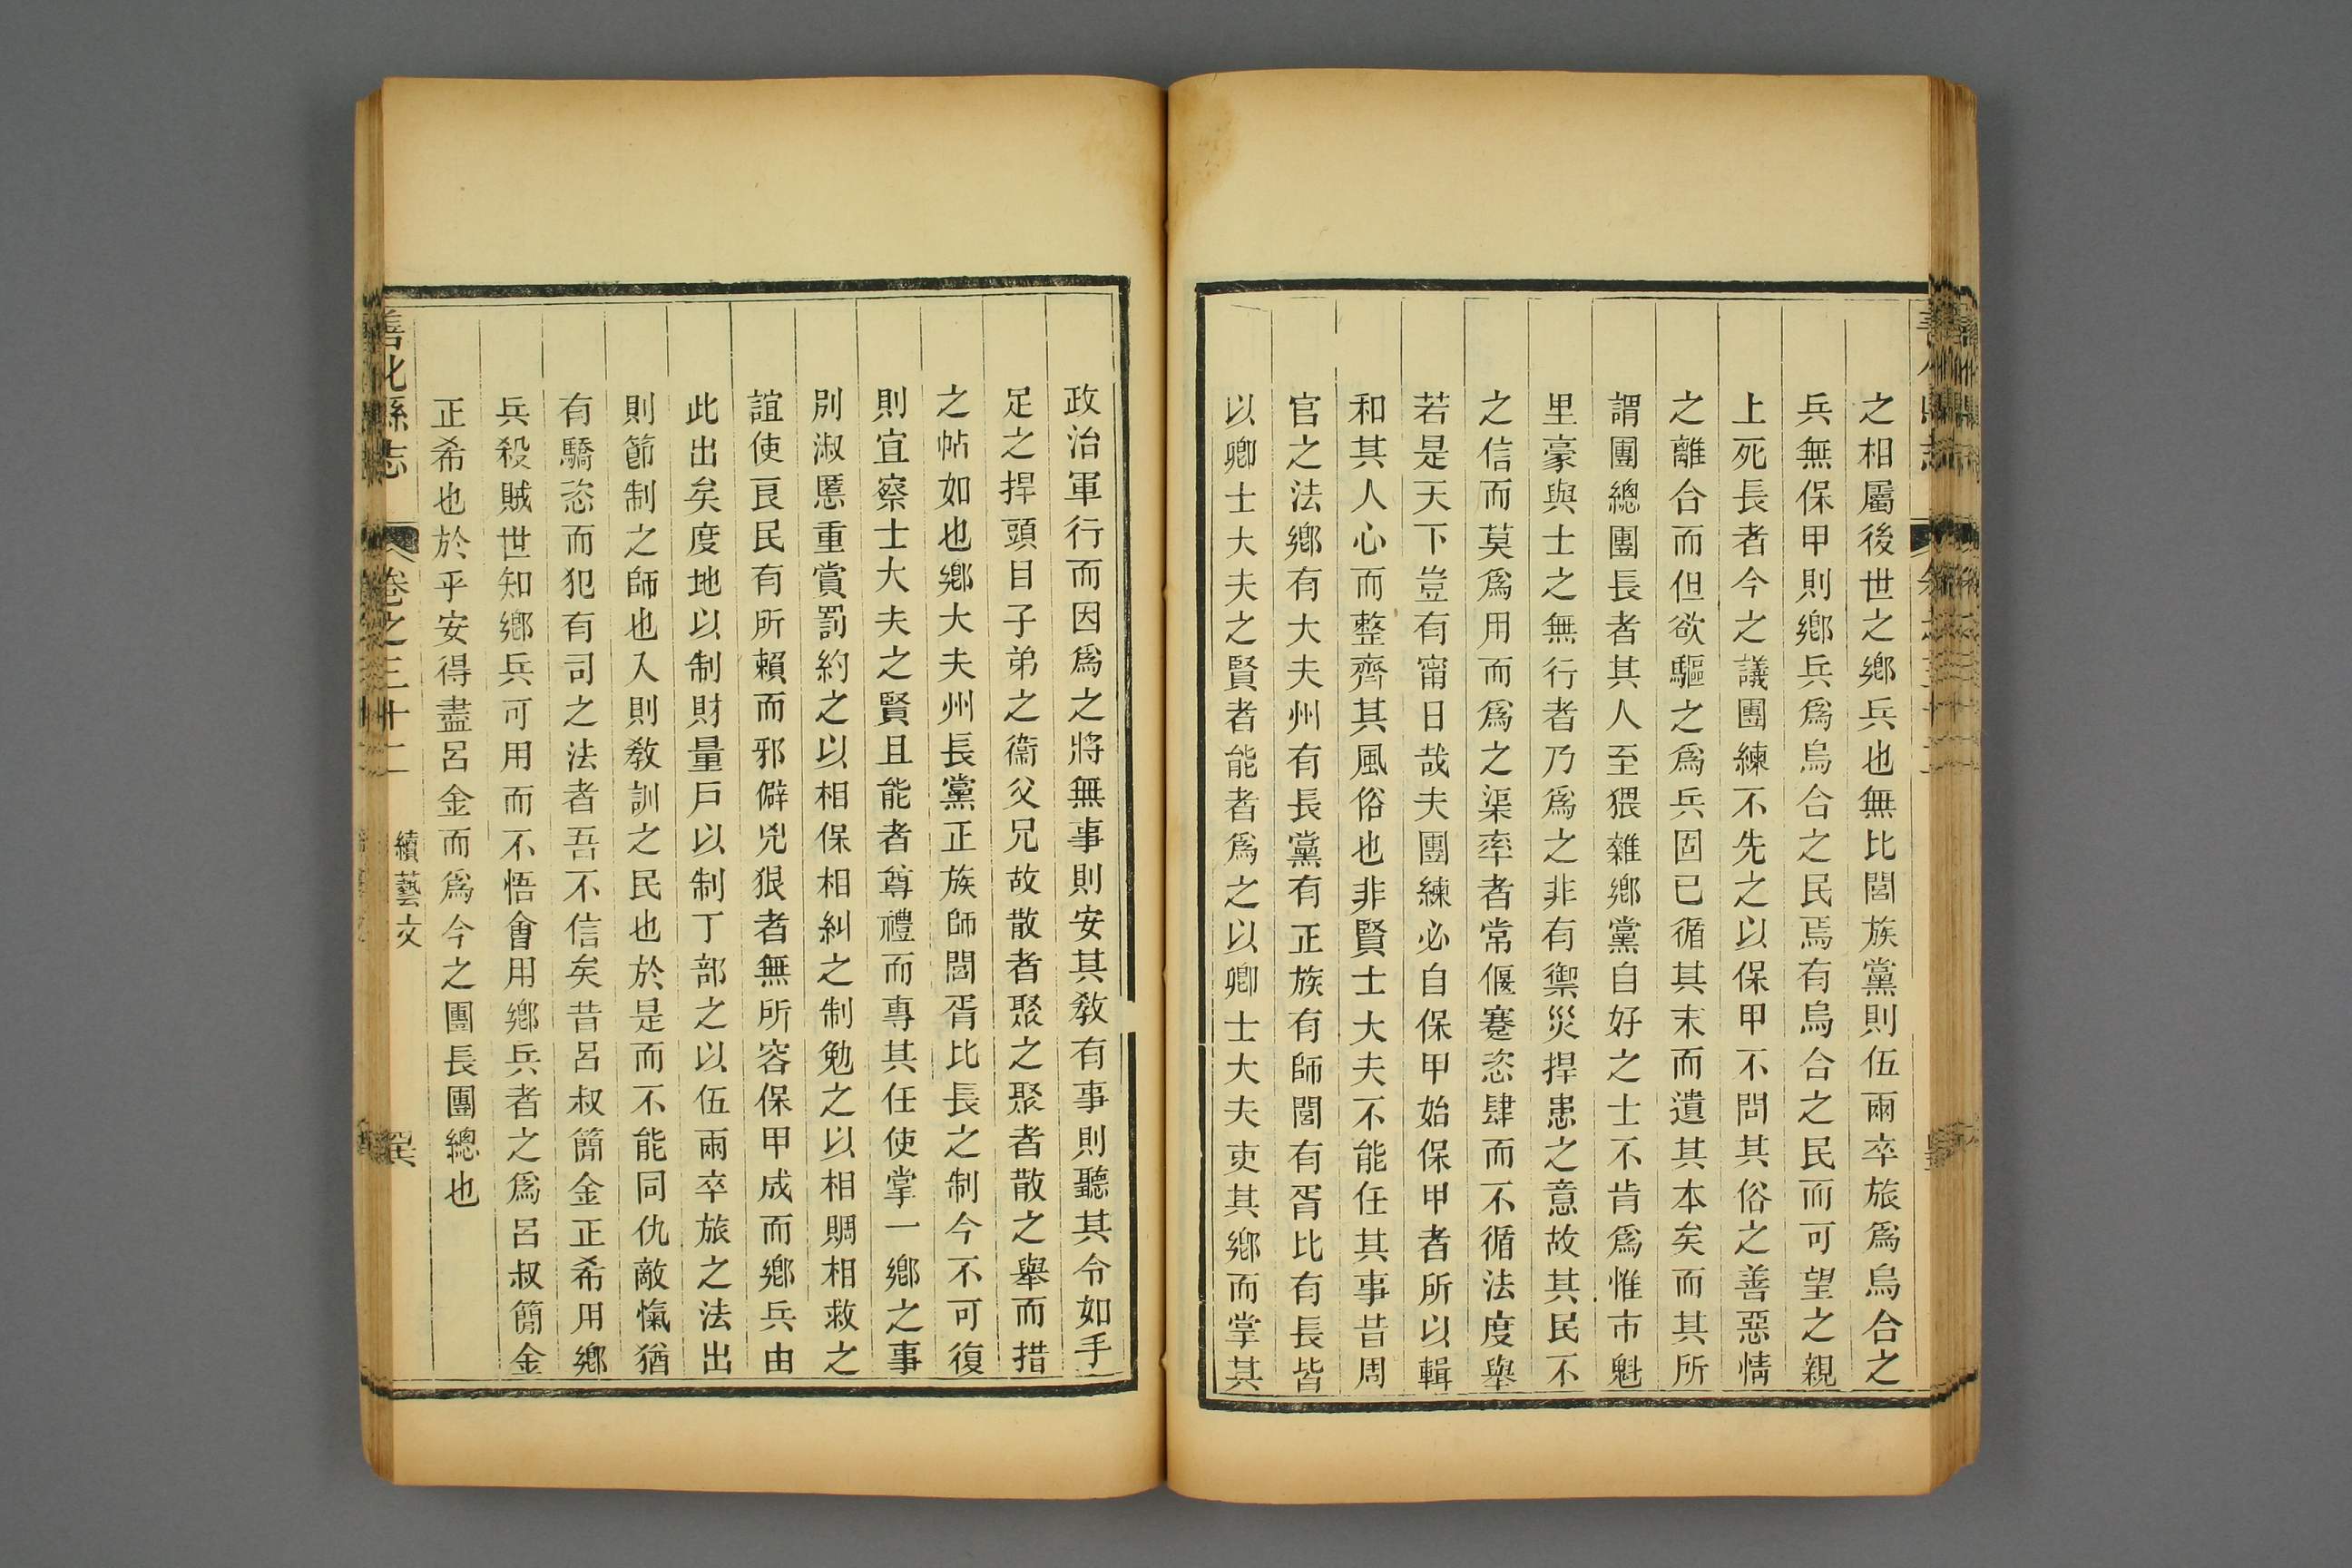 之相屬後世之鄉兵也無比閭族黨則伍兩卒旅爲烏合之
兵無保甲則鄉兵爲烏合之民焉有烏合之民而可望之親
上死長者今之議團練不先之以保甲不問其俗之善惡情
之離合而但欲驅之爲兵固已循其末而遺其本矣而其所
謂團總團長者其人至猥雜鄉黨自好之士不肯爲惟市魁
里豪與士之無行者乃爲之非有禦災捍患之意故其民不
之信而莫爲用而爲之渠率者常偃蹇恣肆而不循法度舉
若是天下豈有甯日哉夫團練必自保甲始保甲者所以輯
和其人心而整齊其風俗也非賢士大夫不能任其事昔周
官之法鄉有大夫州有長黨有正族有師閭有胥比有長皆
以卿士大夫之賢者能者爲之以卿士大夫吏其鄉而掌其
政治軍行而因爲之將無事則安其敎有事則聽其令如手
足之捍頭目子弟之衞父兄故散者聚之聚者散之舉而措
之帖如也鄉大夫州長黨正族師閭胥比長之制今不可復
則宜察士大夫之賢且能者尊禮而專其任使掌一鄉之事
別淑慝重賞罰約之以相保相糾之制勉之以相賙相救之
誼使良民有所賴而邪僻兇狠者無所容保甲成而鄉兵由
此出矣度地以制財量戶以制丁部之以伍兩卒旅之法出
則節制之師也入則敎訓之民也於是而不能同仇敵愾猶
有驕恣而犯有司之法者吾不信矣昔呂叔簡金正希用鄉
兵殺賊世知鄉兵可用而不悟會用鄉兵者之爲呂叔簡金
正希也於乎安得盡呂金而爲今之團長團總也
善化縣志 卷之三十二 續藝文